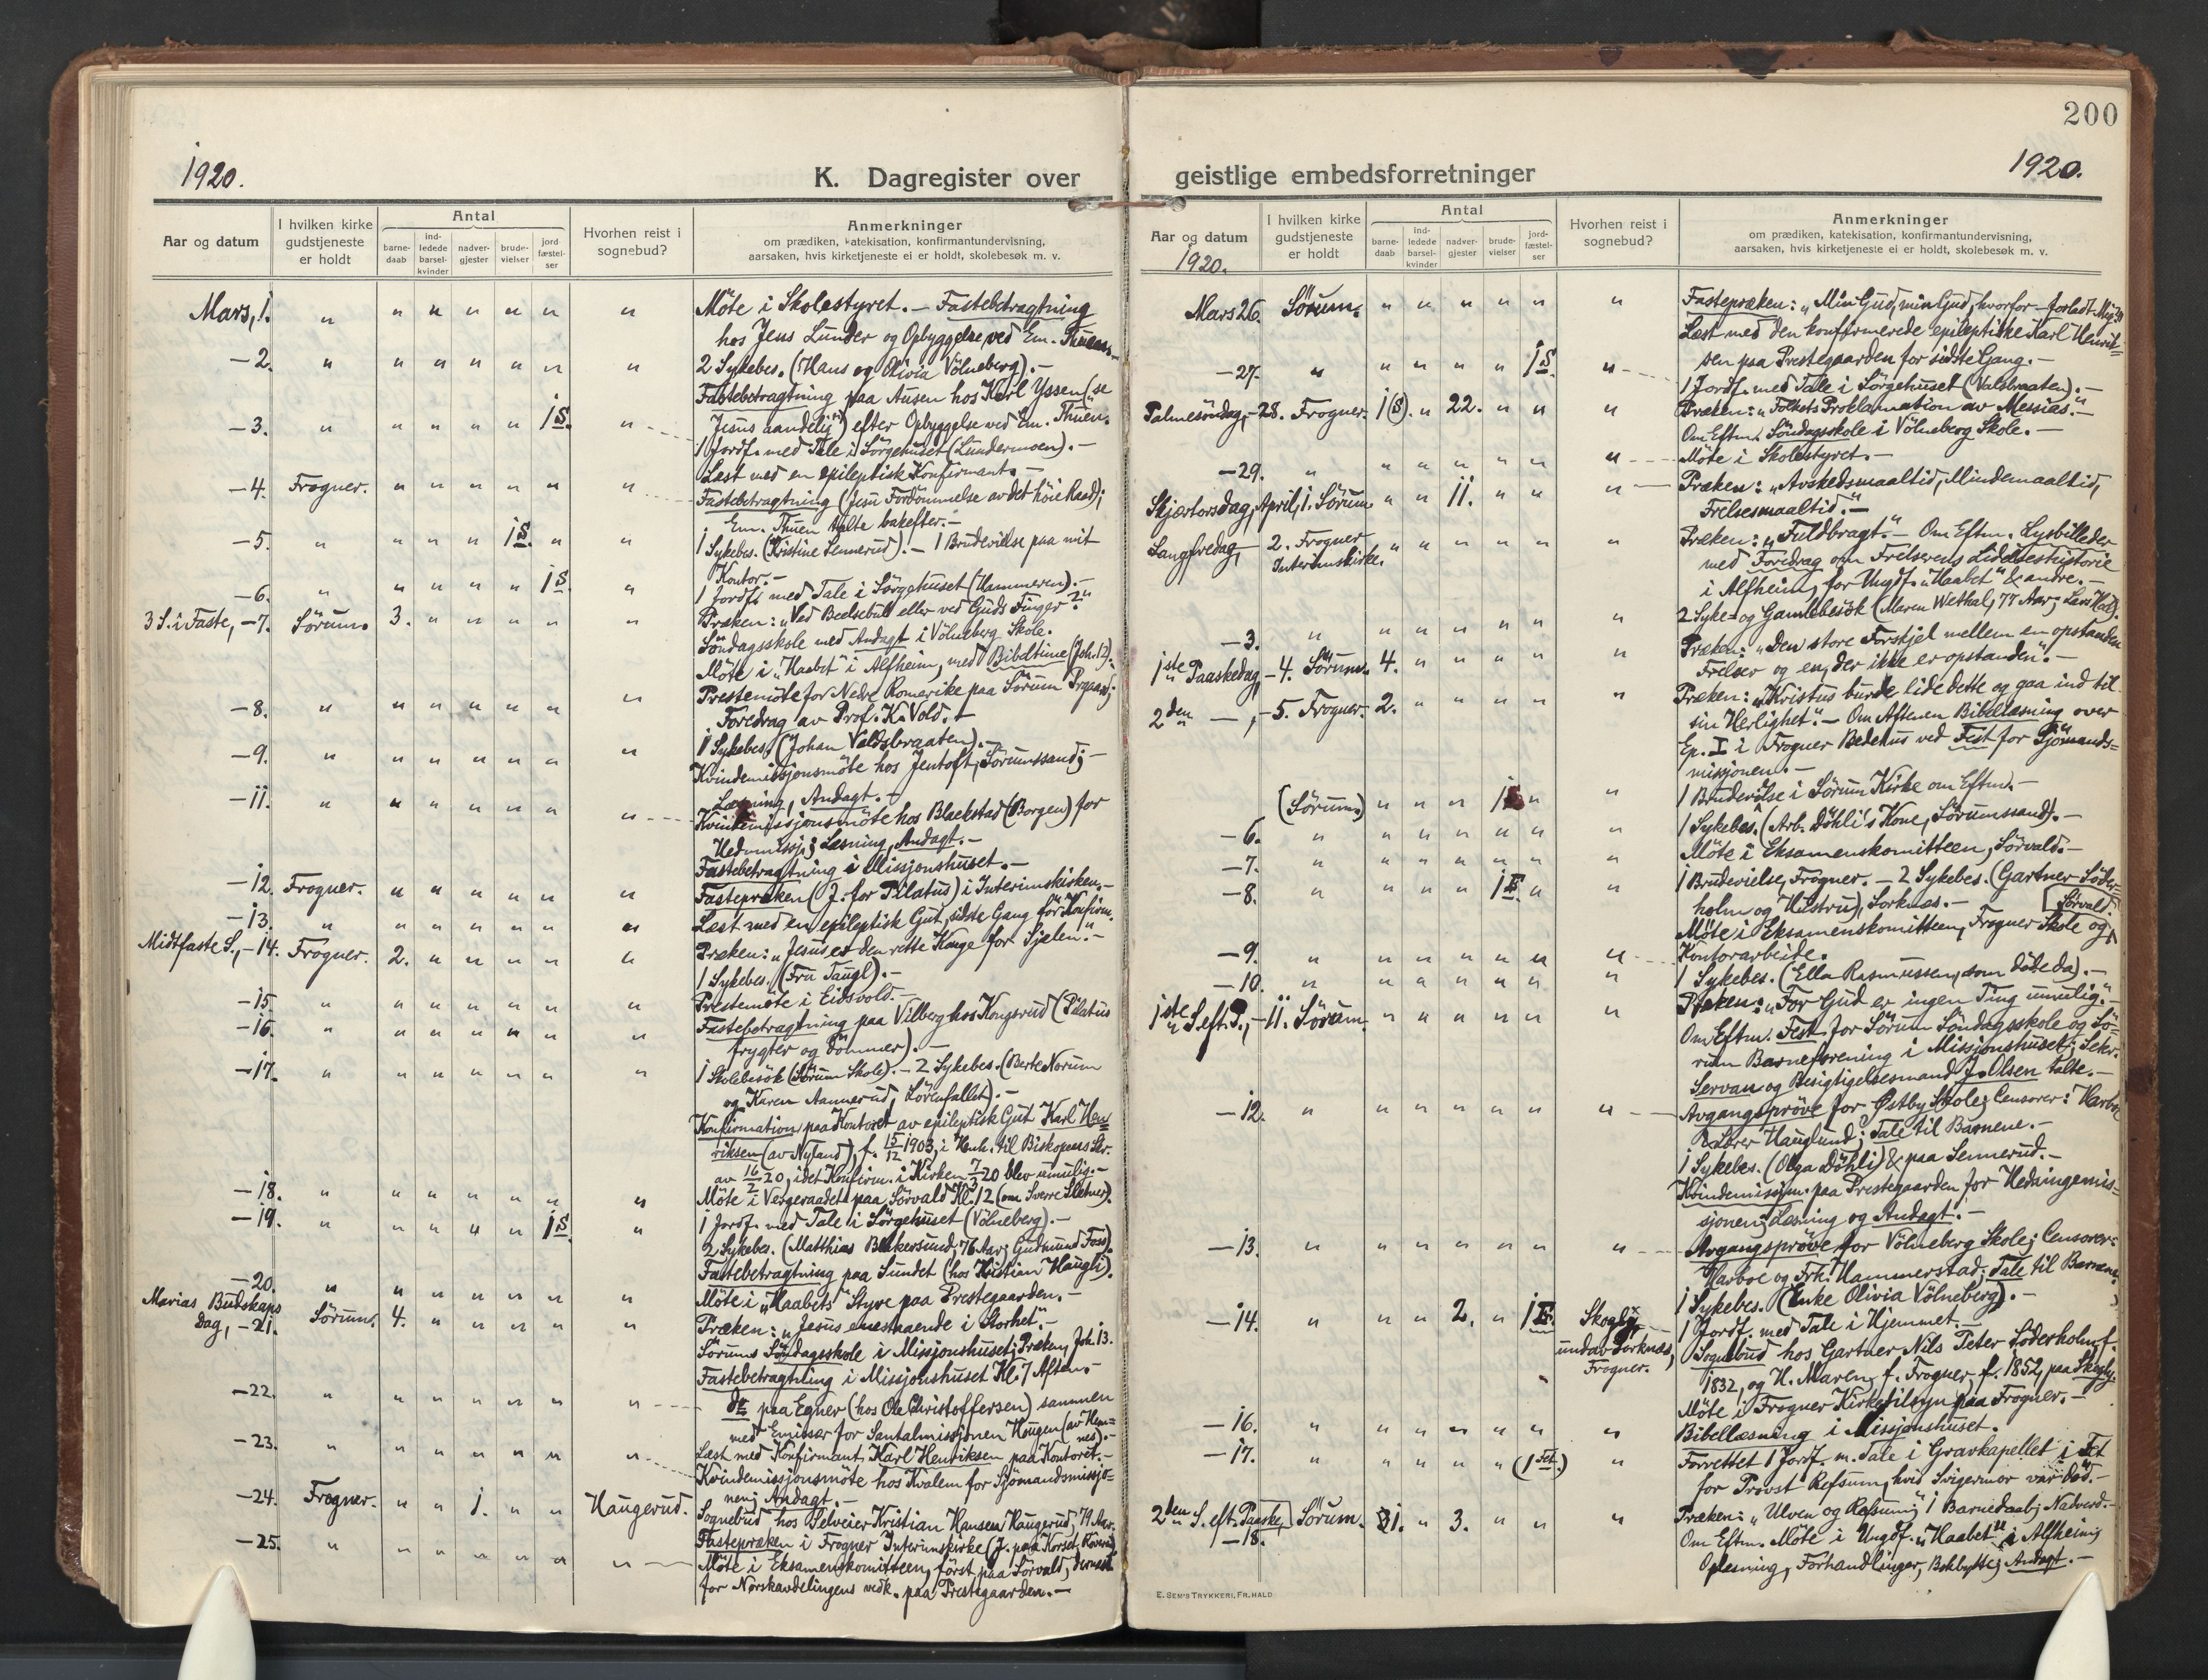 200
1920.
K. Dagregister over
geistlige embedsforretninger
1920.
Aar og datum
I hvilken kirke gudstjeneste er holdt
Antal
barne-daab
ind-ledede barsel-kvinder
nadver-gjester
brude-vielser
jord fæstel-ser
Hvorhen reist i sognebud?
Anmerkninger
om prædiken, katekisation, konfirmantundervisning,
aarsaken, hvis kirketjeneste ei er holdt, skolebesøk m. v.
Mars, 1. " " " " " " " Möte i Skolestyret. — Fastebetragtning
hos Jens Lunder og Opbyggelse ved Em. Thuen.—
—2. " " " " " " " 2 Sykebes. (Hans og Olivia Völneberg).—
Fastebetragtning paa Ausen hos Karl Yssen (se
—3. " " " " " 1 S. " Jesus aandelig") efter Opbyggelse ved Em. Thuen.
1 Jordf. med Tale i Sörgehuset (Lundermoen).—
Læst med en epileptisk Konfirmant.—
—4. Frogner. " " " " " " Fastebetragtning (Jesu Fordömmelse av det höie Raad);
Em. Thuen talte bakefter.—
—5. " " " " 1 S. " " 1 Sykebes. (Kristine Lennerud).— 1 Brudevielse paa mit
Kontor.—
—6. " " " " " 1 S. " 1 Jordf. med Tale i Sörgehuset (Hammeren).—
3 S. i Faste, —7. Sörum. 3. " " " " " Præken: "Ved Beelsebul eller ved Guds Finger?"
Söndagsskole med Andagt i Völneberg Skole.
Möte i "Haabet" i Alfheim, med Bibeltime (Joh. 12).
—8. " " " " " " " Prestemöte for Nedre Romerike paa Sörum Prgaard;
Foredrag av Prof. K. Vold.—
—9. " " " " " " " 1 Sykebes. (Johan Valdsbraaten).—
Kvindemissjonsmöte hos Jentoft, Sörumssand;—
Læsning, Andagt.—
—11. " " " " " " " Kvindemissjonsmöte hos Blackstad (Borgen) for
Hedn.missj.; Læsning, Andagt.—
Fastebetragtning i Missjonshuset.—
—12. Frogner. " " " " " " Fastepræken (J. for Pilatus) i Interimskirken.—
—13. " " " " " " " Læst med en epileptisk Gut, sidste Gang för Konfirm.
Midtfaste S., —14. Frogner. 2. " " " " " Præken: "Jesus er den rette Konge for Sjælen."—
1 Sykebes. (Fru Taugl).—
—15. " " " " " " " Prestemöte i Eidsvold.—
—16. " " " " " " " Fastebetragtning paa Vilberg hos Kongsrud (Pilatus
frygter og dömmer).—
—17. " " " " " " " 1 Skolebesök (Sörum Skole).— 2 Sykebes. (Berte Norum
og Karen Aannerud, Lörenfallet).—
Konfirmation paa Kontoret av epileptisk Gut Karl Hen=
riksen (av Nyland), f. 15/12 1903, i Henh. til Biskopens Skr.
av 16/2 20, idet Konfirm. i Kirken 7/3 20 blev umulig.—
—18. " " " " " " " Möte i Vergeraadet paa Sörvald Kl. 12 (om Sverre Sletner).
—19. " " " " " 1 S. " 1 Jordf. med Tale i Sörgehuset (Völneberg).—
2 Sykebes. (Matthias Blakersund, 76 Aar; Gudmund Foss).
Fastebetragtning paa Sundet (hos Kristian Haugli).
—20. " " " " " " " Möte i "Haabets" Styre paa Prestegaarden.—
Marias Budskaps
Dag, —21. Sörum. 4. " " " " " Præken: "Jesus enestaaende i Storhet."—
Sörums Söndagsskole i Missjonshuset; Præken, Joh. 13.
Fastebetragtning i Missjonshuset Kl. 7 Aften.—
—22. " " " " " " " do paa Egner (hos Ole Christoffersen) sammen
med Emissær for Santalmissjonen Haugen (av Hem=
nes).—
—23. " " " " " " " Læst med Konfirmant Karl Henriksen paa Kontoret.—
Kvindemissjonsmöte hos Kvalem for Sjömandsmissjo=
nen; Andagt.—
—24. Frogner. " " 1. " " Haugerud. Sognebud hos Selveier Kristian Hansen Haugerud, 79 Aar.
Fastepræken i Frogner Interimskirke (J. paa Korset, Röveren).
—25. " " " " " " " Möte i Eksamenskomitteen, först paa Sörvald, dernæst
for Norskavdelingens vedk. paa Prestegaarden.—
Aar og datum
1920.
I hvilken kirke gudstjeneste er holdt
Antal
barne-daab
ind-ledede barsel-kvinder
nadver-gjester
brude-vielser
jord-fæstel-ser
Hvorhen reist i sognebud?
Anmerkninger
om prædiken, katekisation, konfirmantundervisning,
aarsaken, hvis kirketjeneste ei er holdt, skolebesøk m. v.
Mars 26. Sörum. " " " " " " Fastepræken: "Min Gud, min Gud, hvorfor — forladt Mig?"
Læst med den konfirmerede epileptiske Karl Henrik=
sen paa Prestegaarden for sidste Gang.—
—27. " " " " " 1 S. " 1 Jordf. med Tale i Sörgehuset (Valsbraaten).—
Palmesöndag, —28. Frogner. 1 (S). " 22. " " " Præken: "Folkets Proklamation av Messias."—
Om Eftm. Söndagsskole i Völneberg Skole.—
—29. " " " " " " " Möte i Skolestyret.—
Skjærtorsdag, April, 1. Sörum. " " 11. " " " Præken: "Avskedsmaaltid, Mindemaaltid,
Frelsesmaaltid."—
Langfredag, 2. Frogner Interimskirke. " " " " " " Præken: "Fuldbragt."— Om Eftm. Lysbilleder
med Foredrag om Frelserens Lidelseshistorie
i Alfheim, for Ungdf. "Haabet" & andre.—
—3. " " " " " " " 2 Syke- og Gamlebesök (Maren Wethal, 77 Aar; Lars Hval).
1ste Paaskedag, —4. Sörum. 4. " " " " " Præken: "Den store Forskjel mellem en opstanden
Frelser og en, der ikke er opstanden."—
2den —, —5. Frogner. 2. " " " " " Præken: "Kristus burde lide dette og gaa ind til
sin Herlighet."— Om Aftenen Bibellæsning over
Ep. I i Frogner Bedehus ved Fest for Sjömands=
missjonen.—
(Sörum.) " " " 1 " " 1 Brudevielse i Sörum Kirke om Eftm.—
—6. " " " " " " " 1 Sykebes. (Arb. Döhli's Kone, Sörumssand).—
—7. " " " " " " " Möte i Eksamenskomitteen, Sörvald.—
—8. " " " " 1 F. " " 1 Brudevielse, Frogner.— 2 Sykebes. (Gartner Söder=
holm og Hustru), Sorknæs.—
—9. " " " " " " " Möte i Eksamenskomitteen, Frogner Skole og Sörvald.
Kontorarbeide.
—10. " " " " " " " 1 Sykebes. (Ella Rasmussen, som döde da).—
1ste S. eft. P., —11. Sörum. " " " " " " Præken: "For Gud er ingen Ting umulig."—
Om Eftm. Fest for Sörum Söndagsskole og Sö=
rum Barneforening i Missjonshuset; Sekr.
Servan og Besigtigelsesmand J. Olsen talte.—
—12. " " " " " " " Avgangspröve for Østby Skole; Censorer: Harbo
& Lærer Hauglund; Tale til Barnene.—
1 Sykebes. (Olga Döhli) & paa Lennerud.—
Kvindemissjm. paa Prestegaarden for Hedningemis=
sjonen; Læsning og Andagt.—
—13. " " " " " " " Avgangspröve for Völneberg Skole; Censorer:
Harboe og Frk. Hammerstad; Tale til Barnene.
1 Sykebes. (Enke Olivia Völneberg).—
—14. " " " 2. " 1 F. Skogly, 1 Jordf. med Tale i Hjemmet.—
und. av Sorknæs, Frogner. Sognebud hos Gartner Nils Peter Söderholm, f.
1832, og H. Maren, f. Frogner, f. 1852, paa Skogly.
Möte i Frogner Kirketilsyn paa Frogner.—
—16. " " " " " " " Bibellæsning i Missjonshuset.
—17. " " " " " (1 Fet.) " Forrettet 1 Jordf. m. Tale i Gravkapellet i Fet
for Provst Refsum, hvis Svigermor var död.—
2den S. eft. Paaske, —18. Sörum. 1. " 3. " " " Præken: "Ulven og Redning." 1 Barnedaab; Nadverd.—
Om Eftm. Möte i Ungdf. "Haabet" i Alfheim;
Oplæsning, Forhandlinger, Bokbytte; Andagt.—
E. SEM'S TRYKKERI, FR.HALD